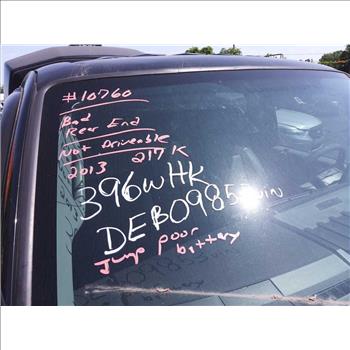 #10760
Bad
Rear End
Not Driveable
2013 217K
396WHK
DEB09853 VIN
Jump poor
battery